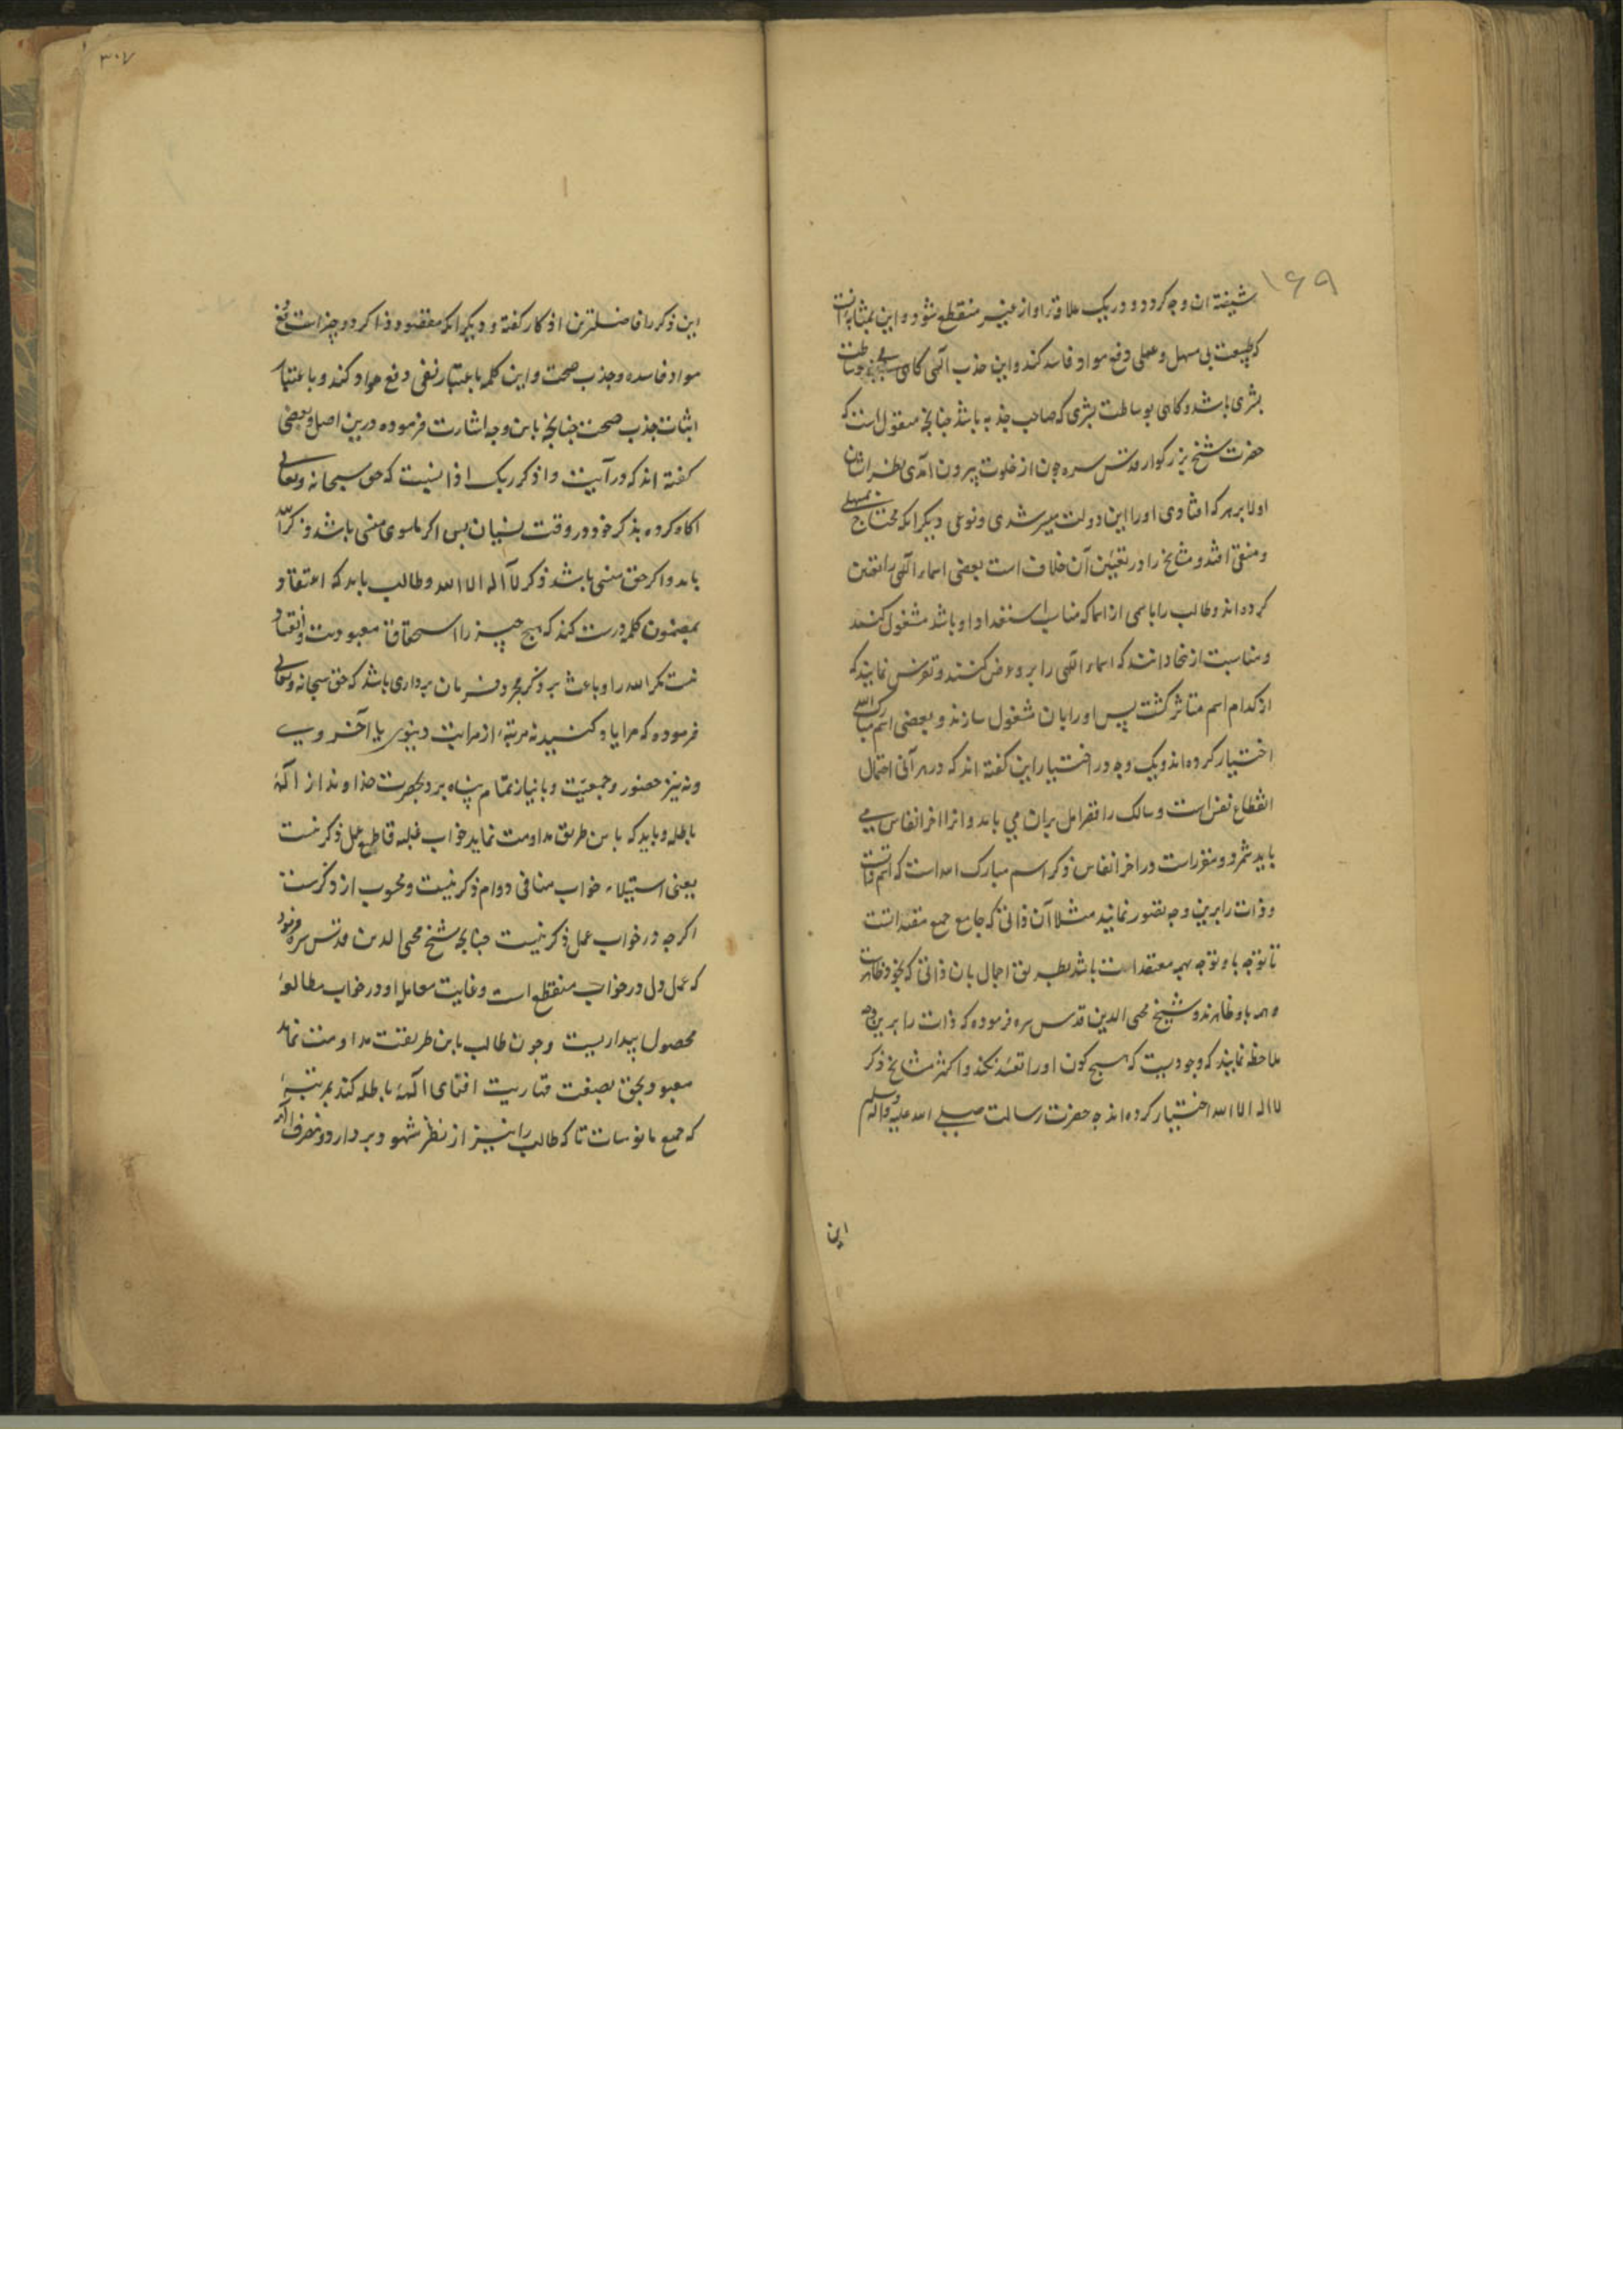 ۱۶۹
شیفتهٔ ان وجه کردد و در یک علاقه را و از غیر منقطع شود و این بمثابهٔ آنست
که طبیعت بی مسهل و عملی دفع مواد فاسد کند و این جذب الهی کاهی بی وساطت
بشری باشد و کاهی بوساطت بشری که صاحب جذبه باشد چنانچه منقول است که
حضرت شیخ بزرکوار قدس سره چون از خلوت بیرون آمدی نظر ایشان
اولا بر هر که افتادی او را این دولت میسر شدی و نوعی دیکر انکه محتاج بمسهلی
و منقی افتد و مشایخ را در تعیین آن خلاف است بعضی اسماء الهی را تعیین
کرده اند و طالب را باسمی از اسما که مناسب استعداد او باشد مشغول کنند
و مناسبت ازنجا دانند که اسماء الهی را برو عرض کنند و تفرس نمایند که
از کدام اسم متاثر کشت پس او را بان مشغول سازند و بعضی اسم مبارک الله
اختیار کرده اند و یک وجه در اختیار این کفته اند که در هر آنی احتمال
انقطاع نفس است و سالک را قصر امل بران می باید و انرا اخر انفاس می
باید شمرد و مقرر است در اخر انفاس ذکر اسم مبارک الله است که اسم ذاتست
و ذات را برین وجه تصور نمایند مثلا آن ذاتی که جامع جمیع معتقداتست
تا توجه باو توجه بهمه معتقدات باشد بطریق اجمال بان ذاتی که بخود ظاهرست
و همه باو ظاهرند و شیخ محیی الدین قدس سره فرموده که ذات را برین وجه
ملاحظه نمایند که وجودیست که هیچ کون او را تقید نکند و اکثر مشایخ ذکر
لا اله الا الله اختیار کرده اند چه حضرت رسالت صلی الله علیه و آله وسلم
این
۳۰۷
این ذکر را فاضلترین اذکار کفته و دیکر انکه مقصود ذاکر دو چیز است دفع
مواد فاسده و جذب صحت و این کلمه باعتبار نفی دفع مواد کند و باعتبار
اثبات جذب صحت چنانچه باین وجه اشارت فرموده درین اصل و بعضی
کفته اند که در آیت واذکر ربک اذا نسیت که حق سبحانه و تعالی
اکاه کرده بذکر خود در وقت نسیان پس اکر ماسوی منسی باشد ذکر الله
باید و اکر حق منسی باشد ذکر لا آله الا الله و طالب باید که اعتقاد
بمضمون کلمه درست کند که هیچ چیز را استحقاق معبودیت و انقیاد
نیست مکر الله را و باعث بر ذکر مجرد فرمان برداری باشد که حق سبحانه و تعالی
فرموده که مرا یاد کنید نه مرتبهٔ از مراتب دنیوی یا آخروی
و نه نیز حضور و جمعیت و با نیاز تمام پناه برد بحضرت خداوند از الههٔ
باطله و باید که باین طریق مداومت نماید خواب غلبه قاطع عمل ذکر نیست
یعنی استیلاء خواب منافی دوام ذکر نیست و محسوب از ذکرست
اکرچه در خواب عمل ذکر نیست چنانچه شیخ محیی الدین قدس سره فرمود
که عمل دل در خواب منقطع است و غایت معامله او در خواب مطالعهٔ
محصول بیداریست و چون طالب باین طریقت مداومت نماید
معبود بحق بصفت قهاریت افنای الههٔ باطله کند بمرتبهٔ
که جمیع مانوسات تا که طالب را نیز از نظر شهود بردارد و تصرف